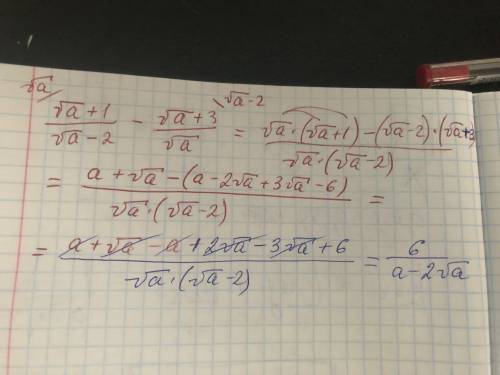 √a √a-2
(√a+1)/(√a-2) - (√a+3)/√a = (√a·(√a+1)-(√a-2)·(√a+3))/(√a·(√a-2))
= (a+√a-(a-2√a+3√a-6))/(√a·(√a-2)) =
= (a+√a-a+2√a-3√a+6)/(√a·(√a-2)) = 6/(a-2√a)